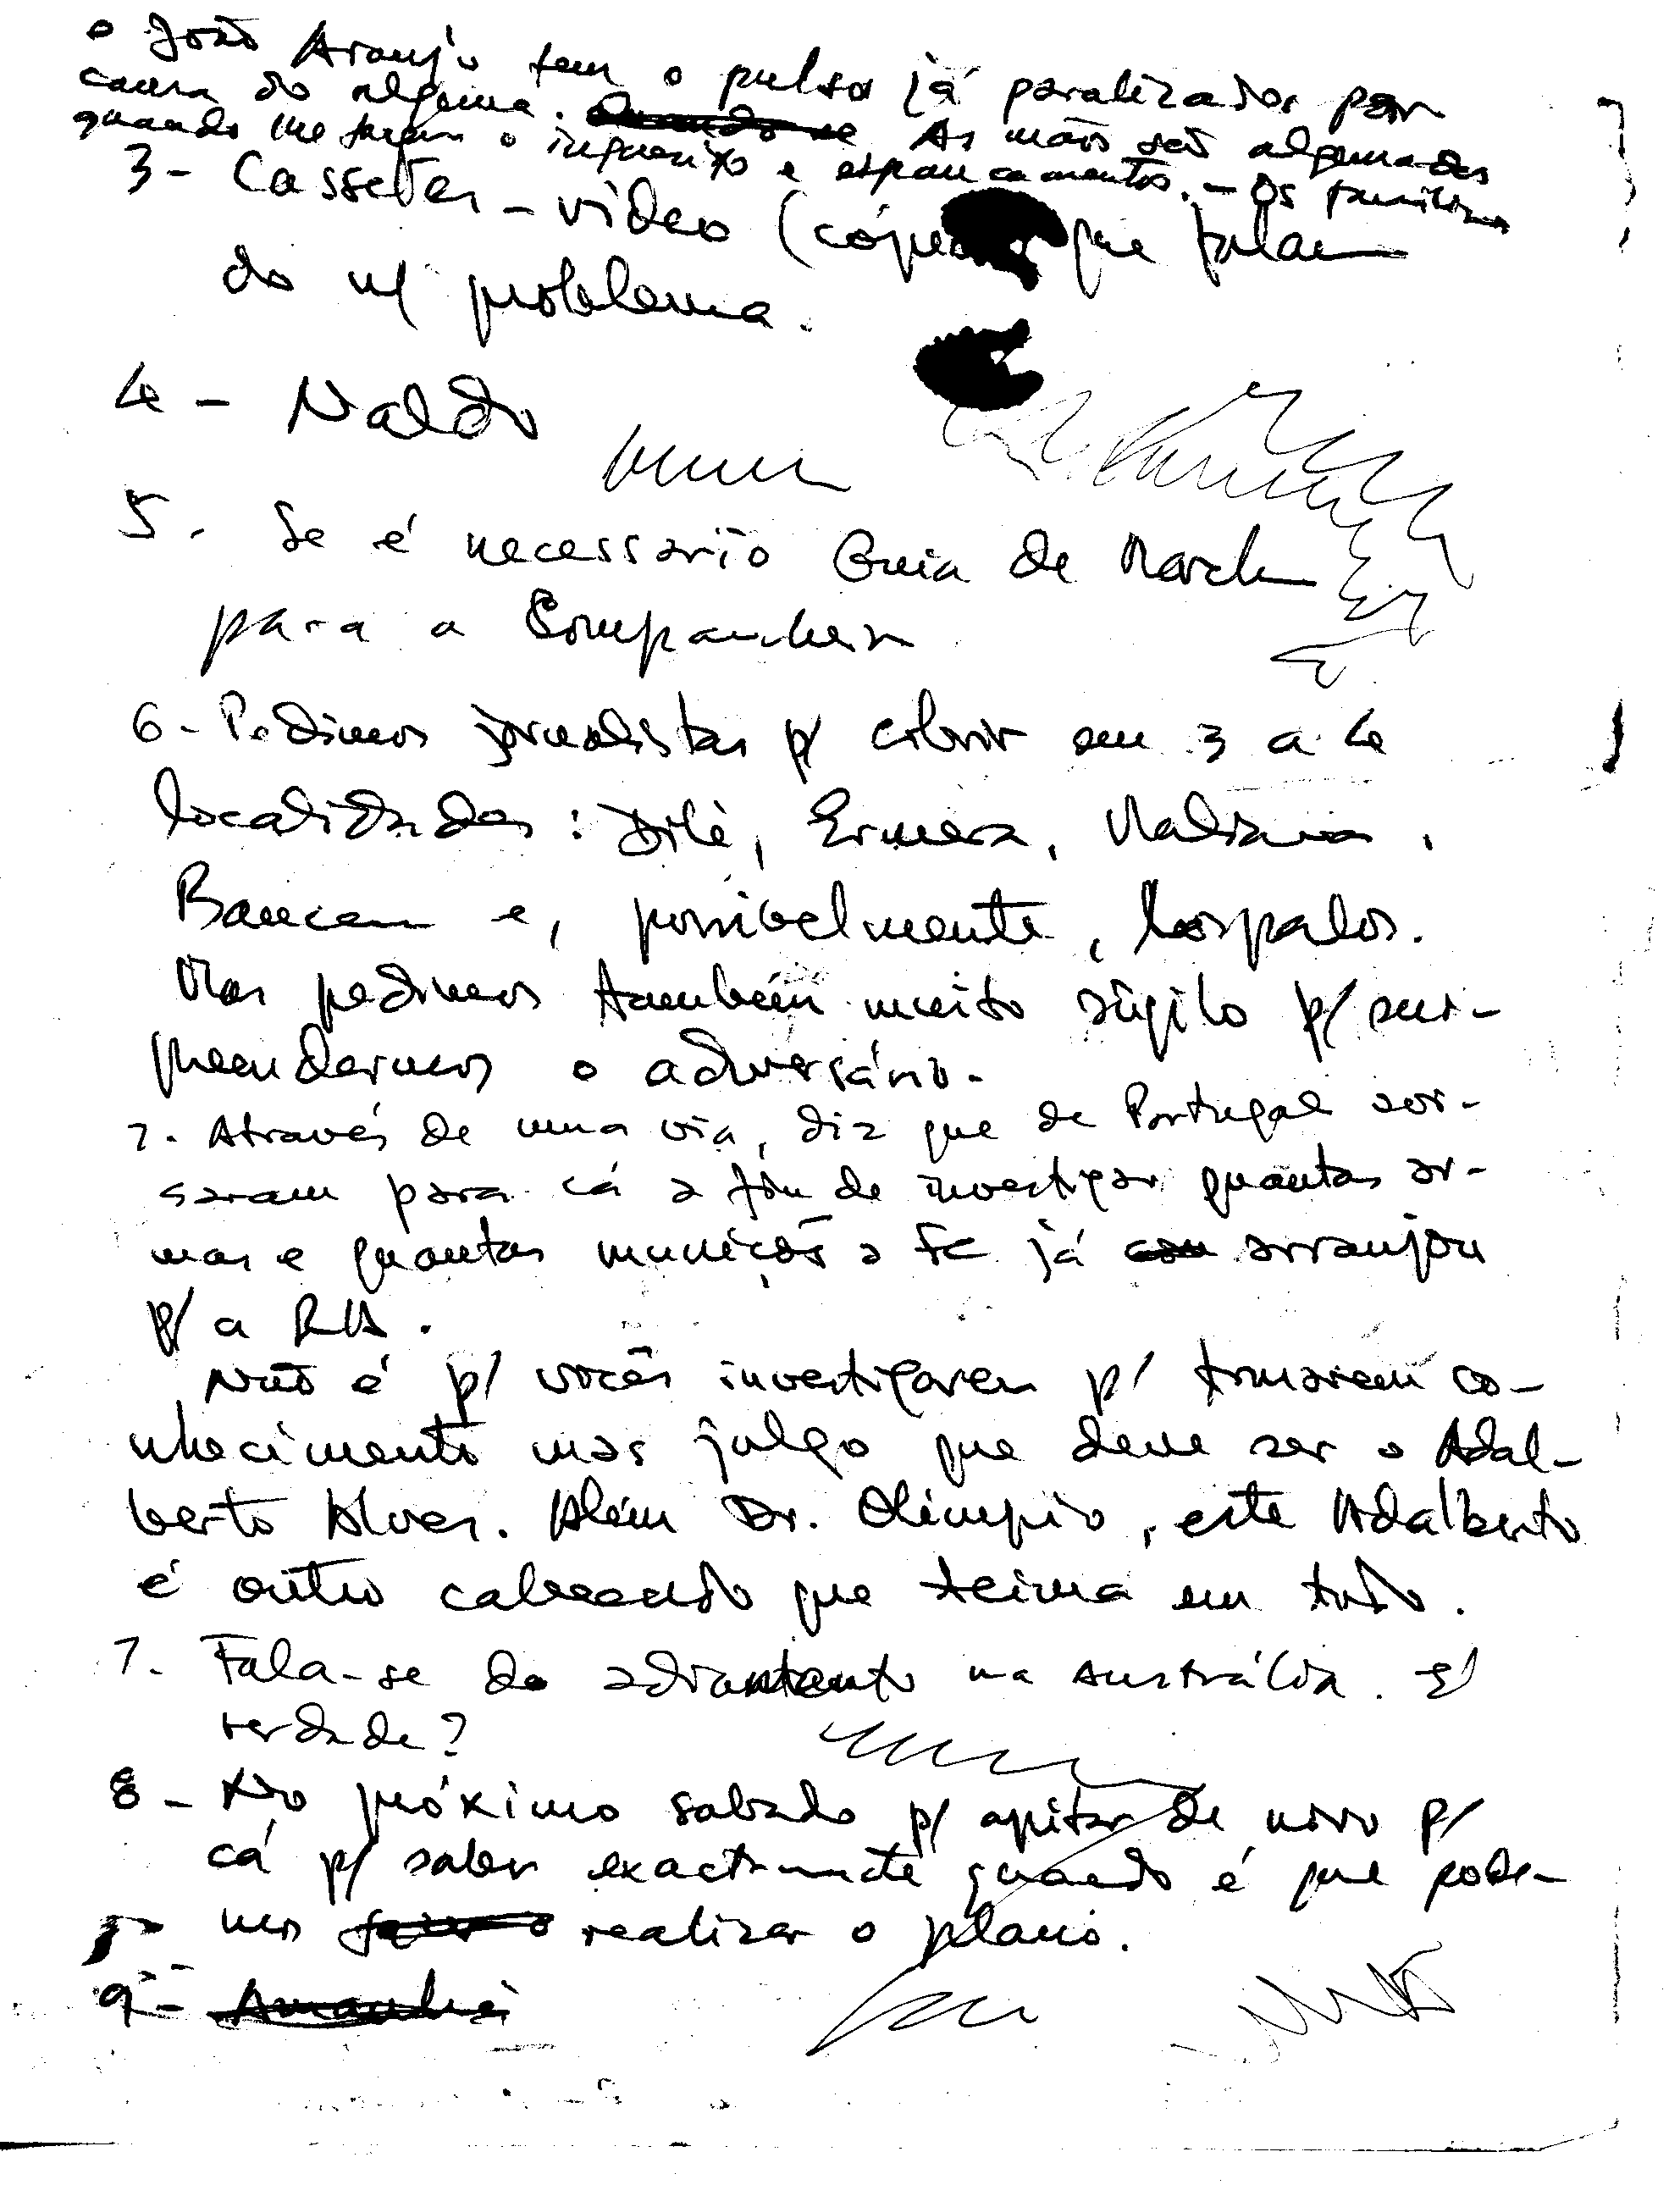 o João Araujo tem o pulso já paralizado, por
causa do algema. As mãos são algemadas
quando lhe fazem o inquerito e espancamentos. - Os familiares
3 - Cassetes-video (cópias que falam
do n/ problema.
4 - Naldo
5. Se é necessario Guia de March
para a Companheira
6 - Pedimos jornalistas p/ cobrir em 3 a 4
localidades: Dili, Ermera, Maliana,
Baucau e, possivelmente, Lospalos.
Mas pedimos também muito sigilo p/ sur-
preendermos o adversário.
7. Através de uma via, diz que de Portugal
para cá a fim de investigar quantas ar-
mas e quantas munições a FC já arranjou
p/ a RA.
Não é p/ vocês investigarem p/ tomarem co-
nhecimento mas julgo que deve ser o Adal-
berto Alves. Além Dr. Olímpio, este Adalberto
é outro que teima em tudo.
7. Fala-se do na Austrália. É
verdade?
8 - No próximo sabado p/ apitar de novo p/
cá p/ saber exactamente quando é que pode-
mos realizar o plano.
9 - Amanhã